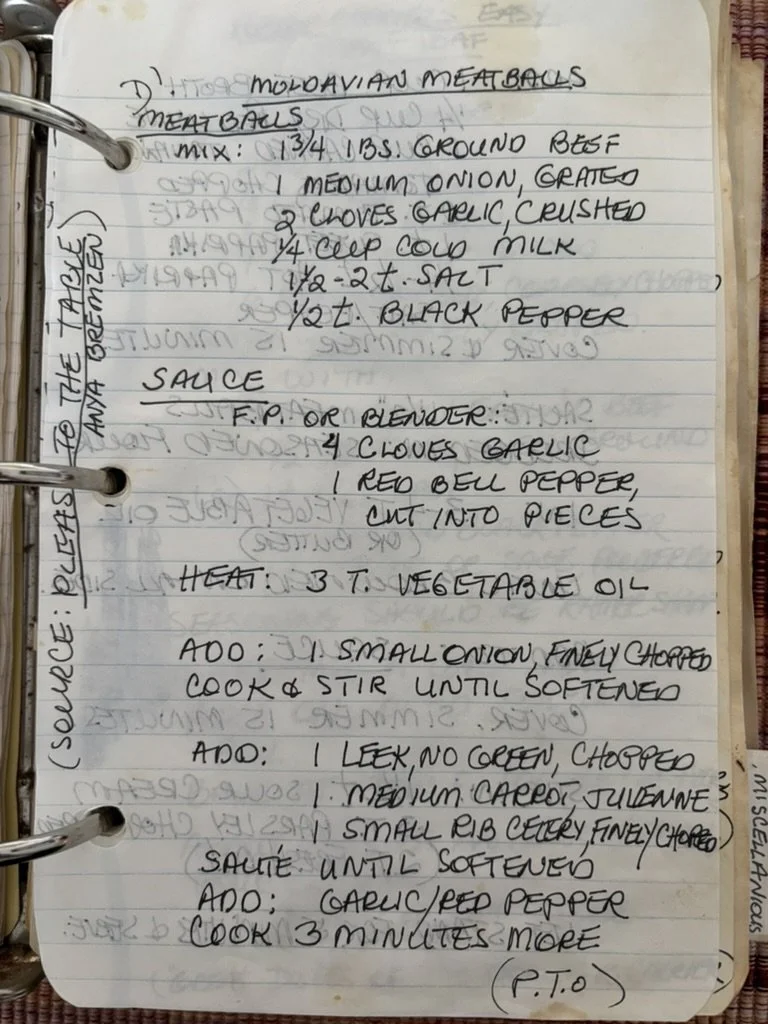 D' MOLDAVIAN MEATBALLS
MEATBALLS
MIX: 1 3/4 lBS. GROUND BEEF
1 MEDIUM ONION, GRATED
2 CLOVES GARLIC, CRUSHED
1/4 CUP COLD MILK
1 1/2 - 2 t. SALT
1/2 t. BLACK PEPPER
SAUCE
F.P. OR BLENDER:
4 CLOVES GARLIC
1 RED BELL PEPPER,
CUT INTO PIECES
HEAT: 3 T. VEGETABLE OIL
ADD: 1 SMALL ONION, FINELY CHOPPED
COOK & STIR UNTIL SOFTENED
ADD: 1 LEEK, NO GREEN, CHOPPED
1 MEDIUM CARROT, JULIENNE
1 SMALL RIB CELERY, FINELY CHOPPED
SAUTÉ UNTIL SOFTENED
ADD: GARLIC/RED PEPPER
COOK 3 MINUTES MORE
(P.T.O)
(SOURCE: PLEAS TO THE TABLE
ANYA BREMZEN)
MISCELLANIOUS